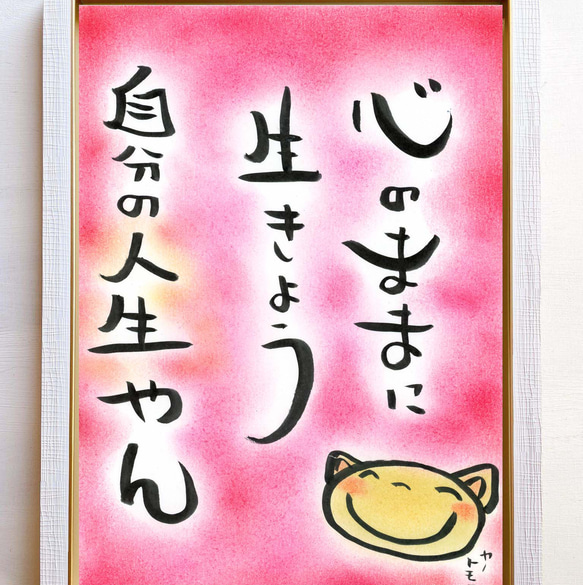 心のままに
生きよう
自分の人生やん
ヤノ
トモ